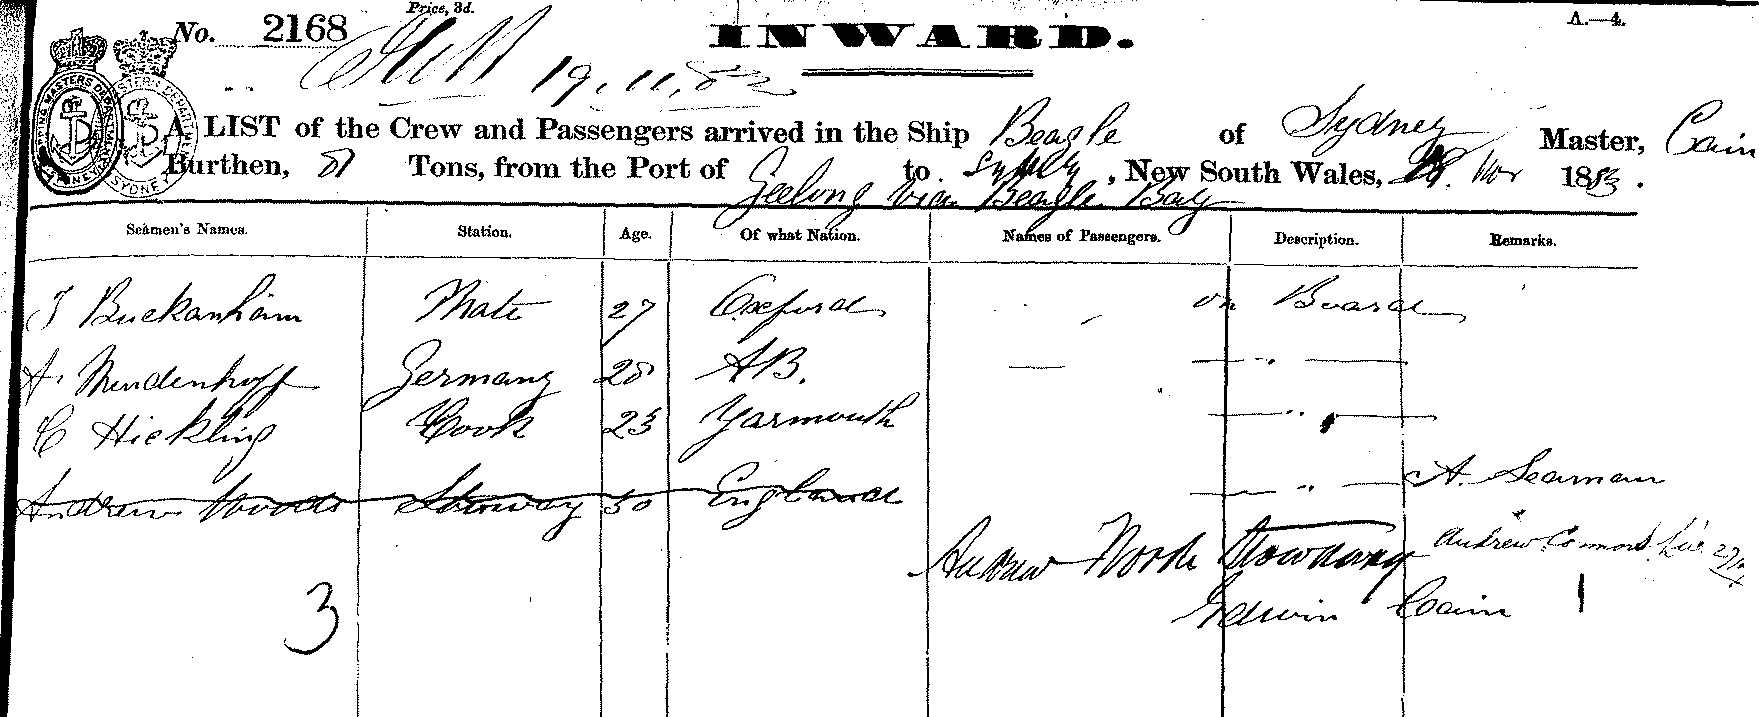 Price, 3d.
A.—4.
No. 2168
INWARD.
19.11.82
A LIST of the Crew and Passengers arrived in the Ship Beagle of Sydney Master, Cain
Burthen, 81 Tons, from the Port of Geelong via Beagle Bay to Sydney, New South Wales, Nov 1883.
Seamen's Names. Station. Age. Of what Nation. Names of Passengers. Description. Remarks.
Buckanham Mate 27 Oxford on Board
Germany 28 AB. — — " —
C Hickling Cook 23 Yarmouth — " —
Andrew Woods Stoway 30 England — " — A. Seaman
Andrew Stowaway Andrew
Edwin Cain 1
3